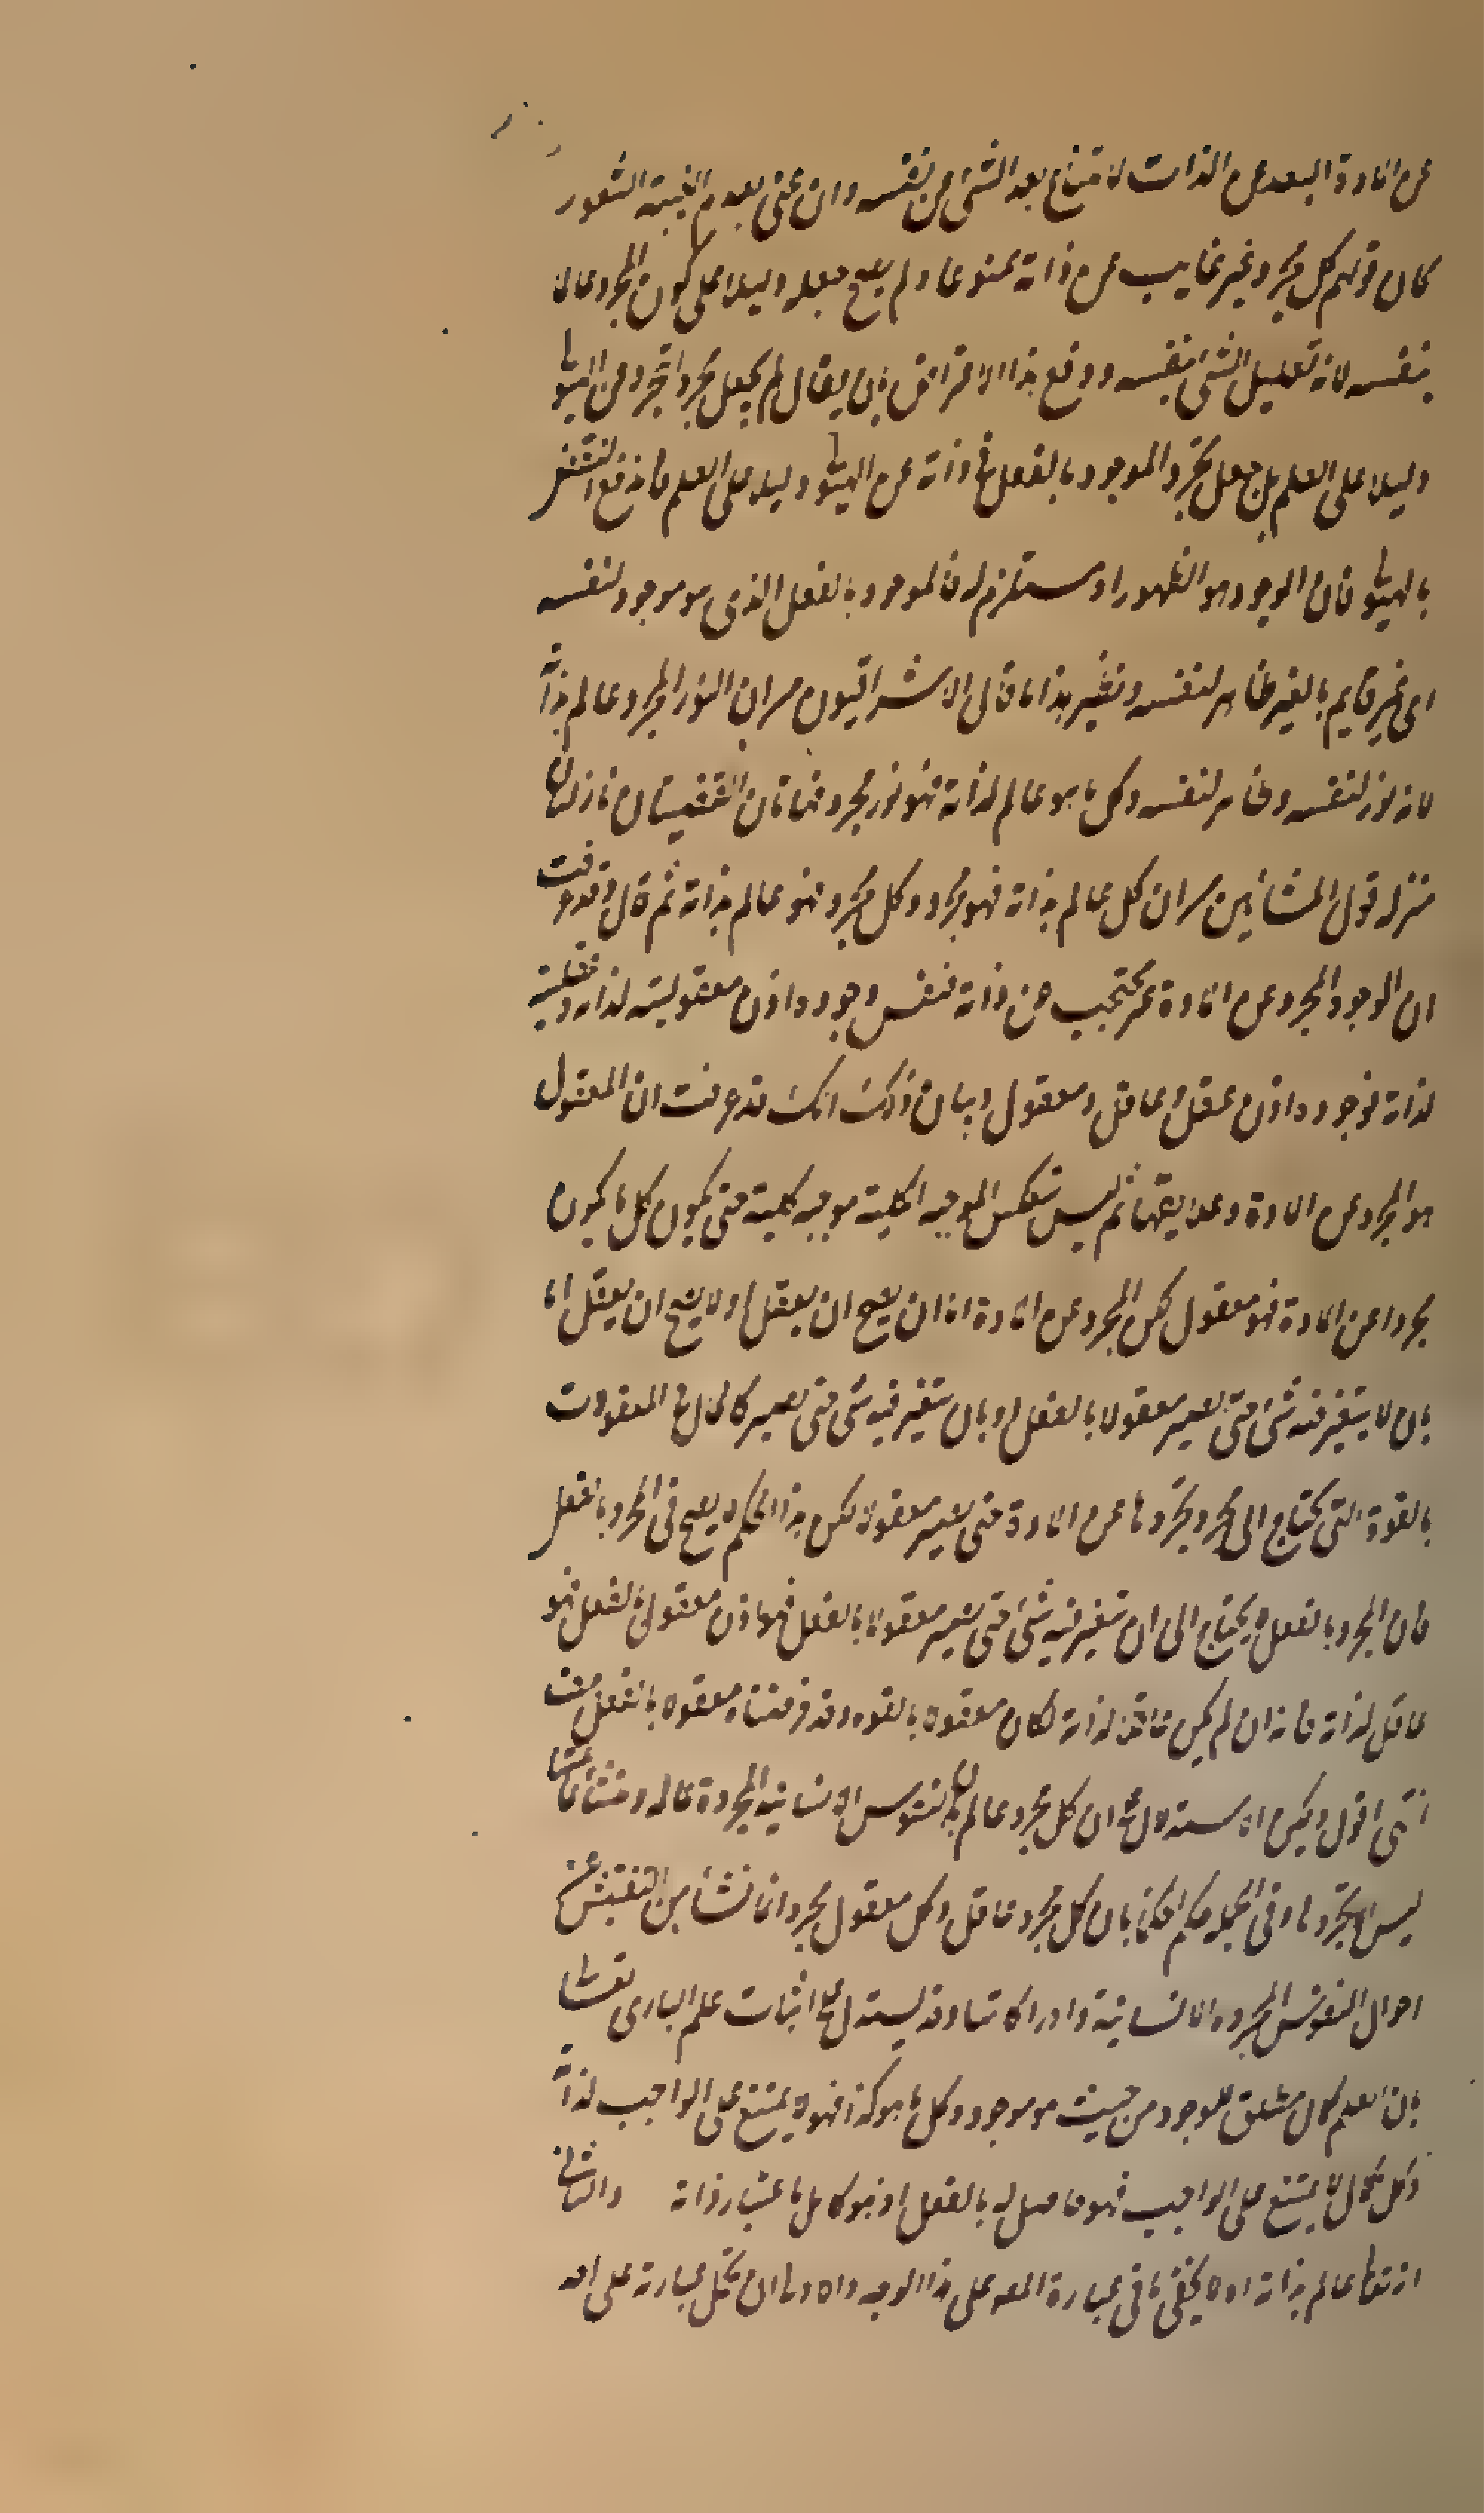 عن المادة البعد عن الذات لامتناع بعد الشئ عن نفسه وان عنى بعدم الغيبة الشعور
كان قولهم كل مجرد غير غايب عن ذاته ممنوعا ولم يصح جعله دليلا على كون المجرد عالما
بنفسه لانه تعليل الشئ بنفسه ودفع هذا الاعتراض بان يقال لم يجعل مجرد التجرد عن الهيولى
دليلا على العلم بل جعل تجرد الموجود بالفعل فى ذاته عن الهيولى دليلا على العلم فاندفع النقض
بالهيولى فان الوجود هو الظهور او مستلزم له فالموجود بالفعل الذى هو موجود لنفسه
اى غير قايم بالغير ظاهر لنفسه ونظير هذا ما قال الاشراقيون من ان النور المجرد عالم بذاته
لانه نور لنفسه وظاهر لنفسه وكل ما هو عالم لذاته فهو نور مجرد فهاتان القضيتان نازلتان
منزلة قول المشائين من ان كل عالم بذاته فهو مجرد وكل مجرد فهو عالم بذاته ثم قال وقد عرفت
ان الوجود المجرد عن المادة غير محتجب عن ذاته فنفس وجوده اذن معقوليته لذاته وعقليته
لذاته فوجوده اذن عقل وعاقل ومعقول وبيان ذلك انك قد عرفت ان المعقول
هو المجرد عن المادة وعلايقها ثم ليس تنعكس الموجبه الكلية موجبه كلية حتى يكون كل ما يكون
مجردا عن المادة فهو معقول لكن المجرد عن المادة اما ان يصح ان يعقل او لا يصح ان يعقل اما
بان لا يتغير فيه شئ حتى يصير معقولا بالفعل او بان يتغير فيه شئ حتى يصير كالحال فى المعقولات
بالقوة التى يحتاج الى مجرد يجردها عن المادة حتى يصير معقولة لكن هذا الحكم لا يصح فى المجرد بالفعل
فان المجرد بالفعل لا يحتاج الى ان يتغير فيه شئ حتى يصير معقولا بالفعل فهو اذن معقول بالفعل فهو
عاقل لذاته فانه ان لم يكن عاقلا لذاته لكان معقولا بالقوه وقد فرضناه معقولا بالفعل هف
انتهى اقول ويمكن الاستدلال على ان كل مجرد عالم بان النفوس الانسانية المجردة عالمه ومنشأ علمها
ليس الا تجردها وفى الجمله حكم الحكماء بان كل مجرد عاقل وكل معقول مجرد انما نشأ من التفتيش عن
احوال النفوس المجرده الانسانية وادراكاتها وقد يستدل على اثبات علم البارى تعالى
بان العلم كمال مطلق للموجود من حيث هو موجود وكل ما هو كذا فهو لا يمتنع على الواجب لذاته
وكل كمال لا يمتنع على الواجب فهو حاصل له بالفعل اذ هو كامل باعتبار ذاته والثانى
انه تعالى عالم بذاته اه لا يخفى ما فى عبارة المصه على هذا الوجه والاولى ان تحمل عبارته على احد